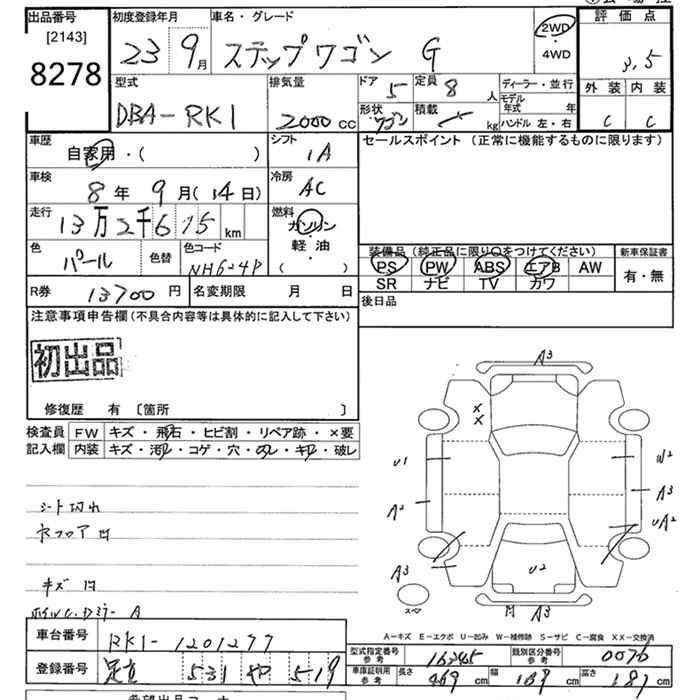 出品番号
[2143]
8278
初度登録年月
23 9月
車名・グレード
ステップワゴン G
2WD
・
4WD
評価点
3.5
外装 内装
C C
型式
DBA-RK1
排気量
2000 cc
ドア 5
定員 8 人
形状 ワゴン
積載 kg
ディーラー・並行
モデル年式 年
ハンドル 左・右
車歴
自家用・( )
シフト
IA
セールスポイント (正常に機能するものに限ります)
車検
8年 9月(14日)
冷房
AC
走行
13万2千615km
燃料
ガソリン
・
軽油
( )
色
パール
色替
色コード
NH624P
装備品 (純正品に限り○をつけてください)
PS PW ABS エアB AW
SR ナビ TV カワ
新車保証書
有・無
R券 13700円
名変期限 月 日
後日品
注意事項申告欄(不具合内容等は具体的に記入して下さい)
初出品
修復歴 有 〔箇所 〕
検査員記入欄
FW キズ・飛石・ヒビ割・リペア跡・×要
内装 キズ・汚レ・コゲ・穴・スレ・キレ・破レ
シート切れ
キズ
A3
X
X
U1
W2
A2
A3
UA2
A3
U2
スペア
A3
A-キズ E-エクボ U-凹み W-補修跡 S-サビ C-腐食 XX-交換済
車台番号 RK1-1201277
登録番号 足立 531 や 519
型式指定番号 参考 16345
類別区分番号 参考 0076
車庫証明用 参考 長さ 469cm 幅 169cm 高さ 181cm